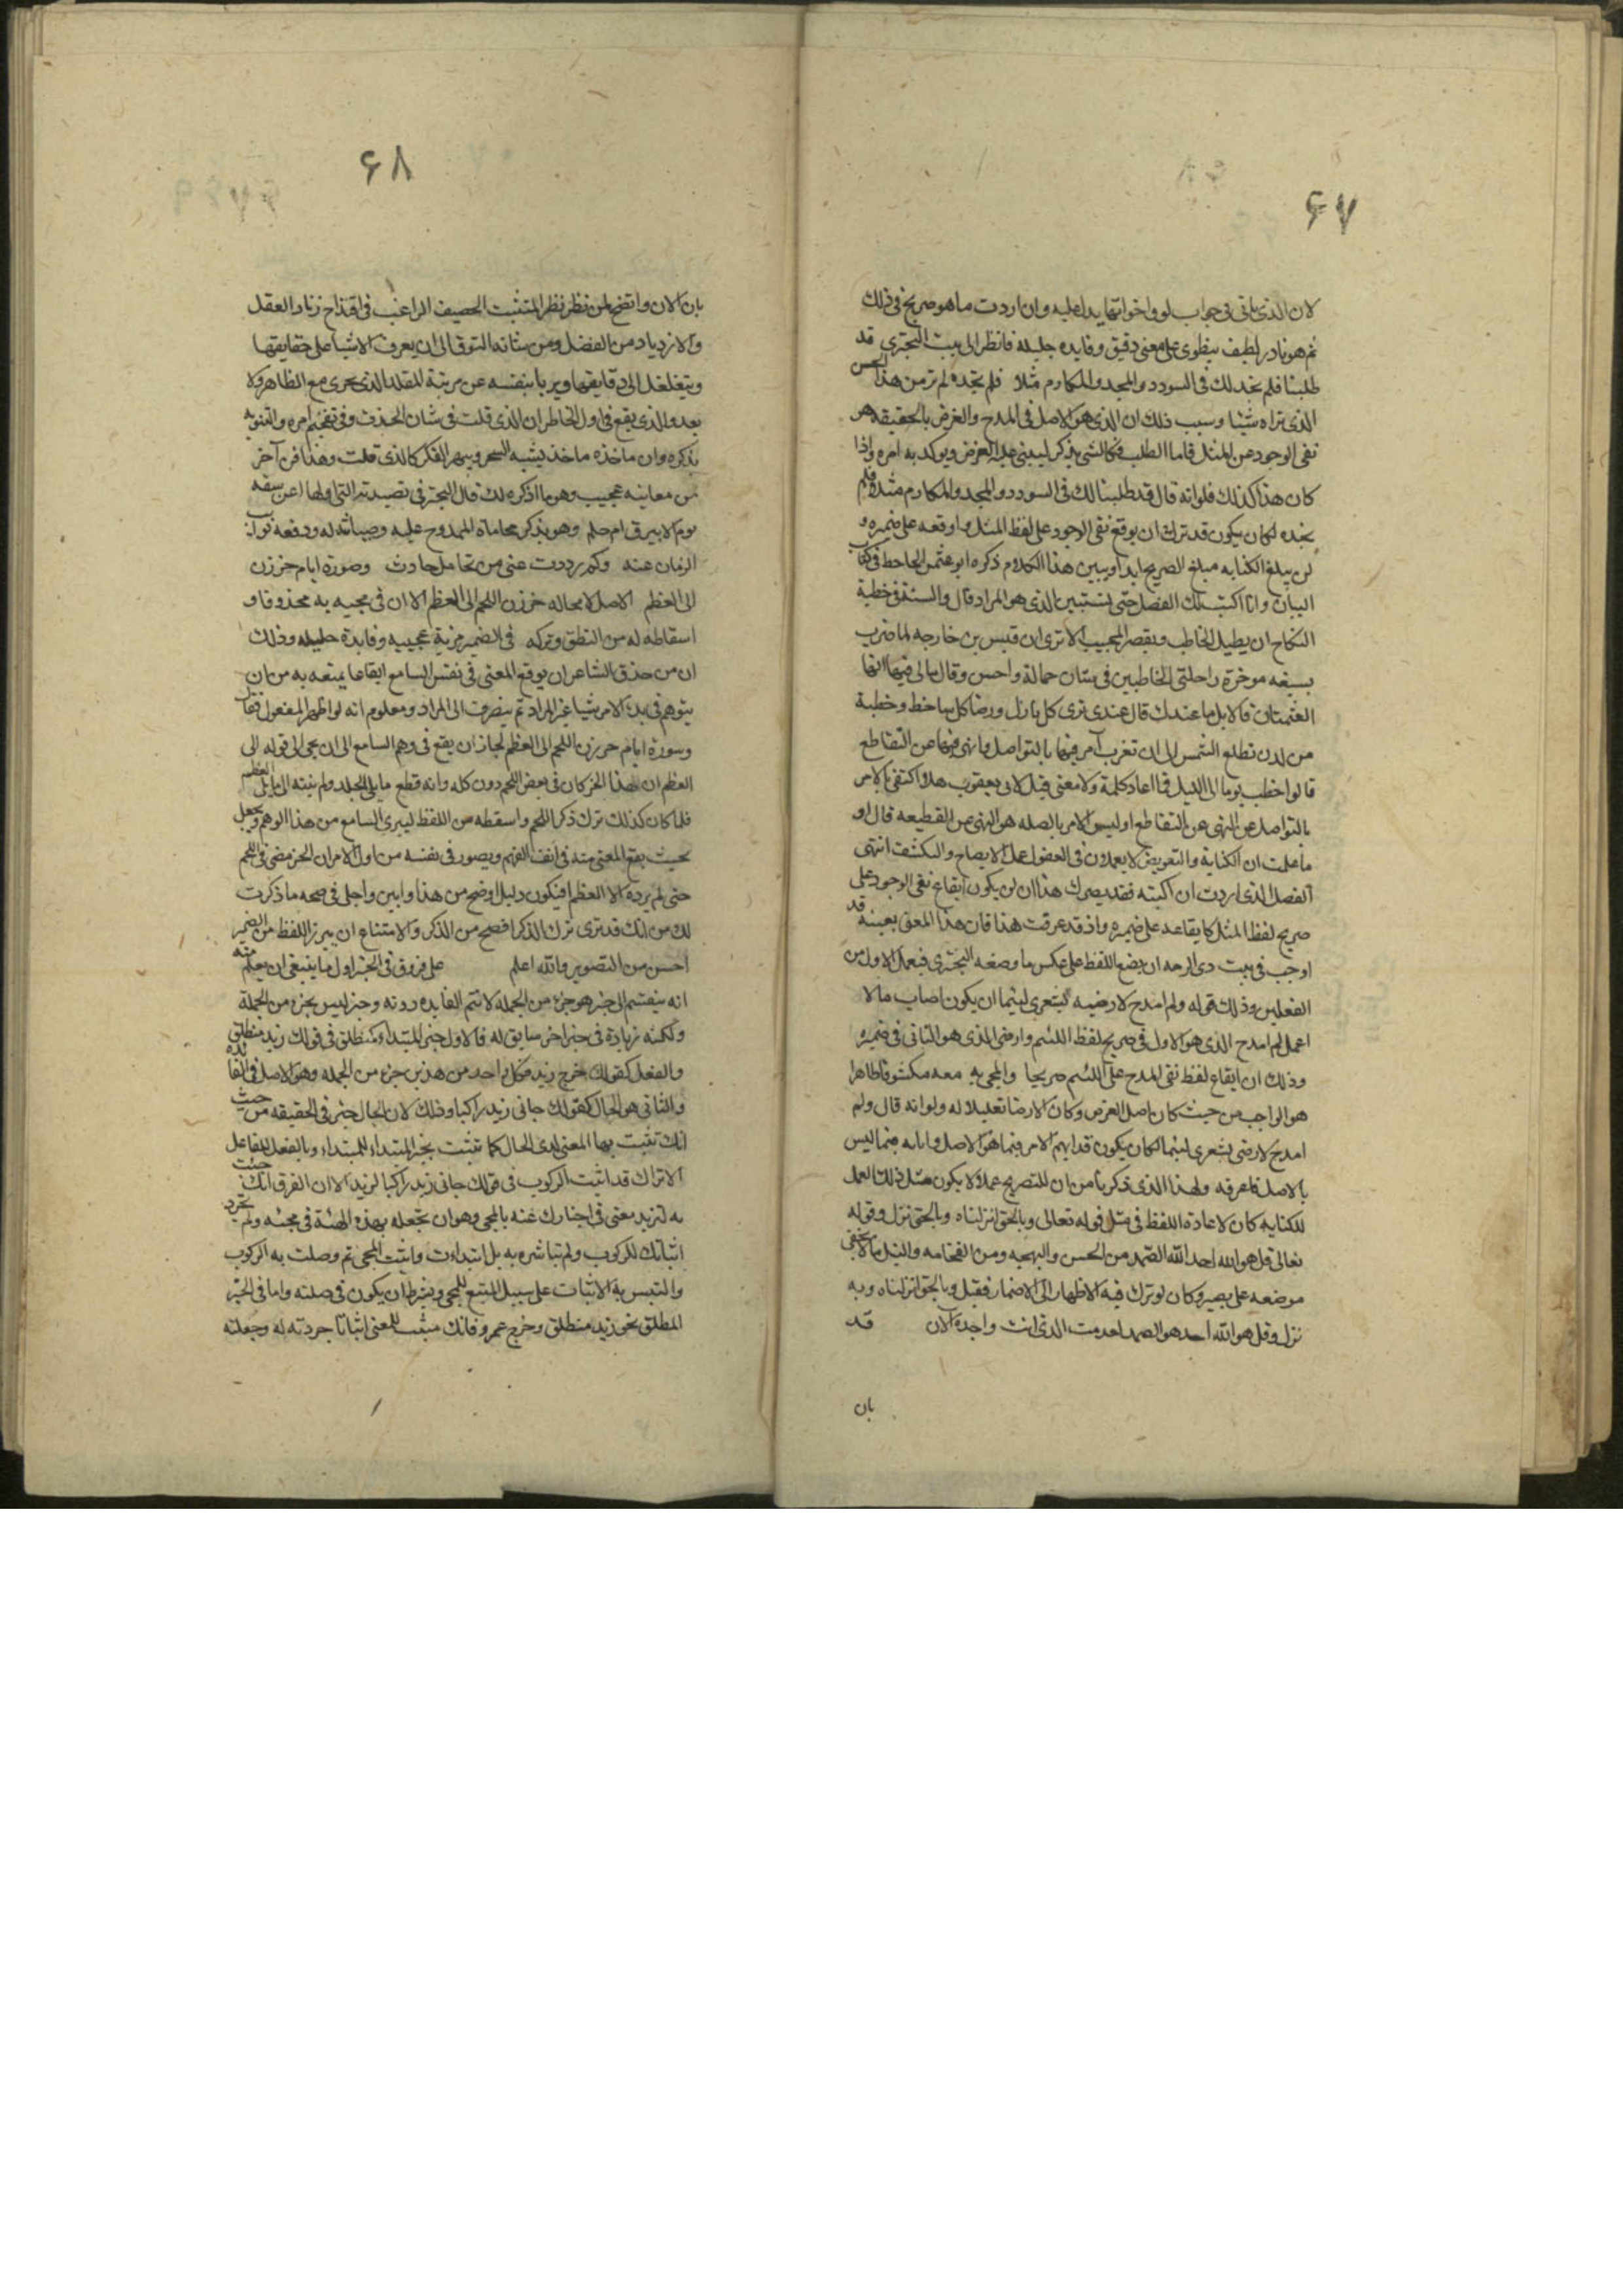 ۶۷
لان الذی یاتی فی جواب لو واخواتها یدل علیه وان اردت ما هو صریح فی ذلك
ثم هو نادر لطیف ینطوی علی معنی دقیق وفایده جلیله فانظر الی بیت البحتری قد
طلبنا فلم نجد لك فی السودد والمجد والمكارم مثلا فلم نجده لم تر من هذا الحسن
الذی تراه شیئا وسبب ذلك ان الذی هو الاصل فی المدح والغرض بالحقیقه هو
نفی الوجود عن المثل فاما الطلب فكالشی یذكر لیبنی علیه الغرض ویوكد به امره واذا
كان هذا كذلك فلو انه قال قد طلبنا لك فی السودد والمجد والمكارم مثلا فلم
نجده لكان یكون قد ترك ان یوقع نفی الوجود علی لفظ المثل واوقعه علی ضمیره و
لن یبلغ الكنایه مبلغ الصریح ابدا ویبین هذا الكلام ذكره ابو عثمن الجاحظ فی كتاب
البیان وانا اكتب لك الفصل حتی یستبین الذی هو المراد قال والسنة فی خطبة
النكاح ان یطیل الخاطب ویقصر المجیب الا تری ان قیس بن خارجه لما ضرب
بسیفه موخرة راحلتی الخاطبین فی شان حمالة واحس وقال ما لی فیها ایها
العثمتان قالا بل ما عندك قال عندی قری كل نازل ورضا كل ساخط وخطبة
من لدن تطلع الشمس الی ان تغرب آمر فیها بالتواصل وانهی فیها عن التقاطع
قالوا خطب یوما الی اللیل فما اعاد كلمة ولا معنی فقیل لابی یعقوب هلا اكتفی بالامر
بالتواصل عن النهی عن التقاطع اولیس الامر بالصله هو النهی عن القطیعه قال او
ما علمت ان الكنایة والتعریض لا یعملون فی العقول عمل الایضاح والكشف انتهی
الفصل الذی اردت ان اكتبه فقد یصرك هذا ان لن یكون ایقاع نفی الوجود علی
صریح لفظ المثل كایقاعه علی ضمیره واذ قد عرفت هذا فان هذا المعنی بعینه قد
اوجب فی بیت ذی الرمه ان یضع اللفظ علی عكس ما وضعه البحتری فیعمل الاول من
الفعلین وذلك قوله ولم امدح لارضیه بشعری لئیما ان یكون اصاب مالا
اعمل لم امدح الذی هو الاول فی صریح لفظ اللئیم وارضی الذی هو الثانی فی ضمیره
وذلك ان ایقاع لفظ نفی المدح علی اللئیم صریحا والمجی به معه مكشوفا ظاهرا
هو الواجب من حیث كان اصل الغرض وكان الارضا تعلیلا له ولو انه قال ولم
امدح لارضی بشعری لئیما لكان یكون قد ابهم الامر فیما هو الاصل وابانه فیما لیس
بالاصل فاعرفه ولهذا الذی ذكرنا من ان للتصریح عملا لا یكون مثل ذلك العمل
للكنایه كان لاعادة اللفظ فی مثل قوله تعالی وبالحق انزلناه وبالحق نزل وقوله
تعالی قل هو الله احد الله الصمد من الحسن والبهجه ومن الفخامه والنبل ما لا یخفی
موضعه علی بصیر وكان لو ترك فیه الاظهار الی الاضمار فقیل وبالحق انزلناه وبه
نزل وقل هو الله احد هو الصمد لعدمت الذی انت واجده الان قد
بان
۶۸
بان الان واتضح لمن نظر نظر المتثبت الحصیف الراغب فی اقتداح زناد العقل
والازدیاد من الفضل ومن شانه التوق الی ان یعرف الاشیا علی حقایقها
ویتغلغل الی دقایقها ویربا بنفسه عن مرتبة المقلد الذی یجری مع الظاهر ولا
یعدو الذی یقع فی اول الخاطر ان الذی قلت فی شان الحذف وفی تفخیم امره والتنویه
بذكره وان ماخذه ماخذ یشبه السحر ویبهر الفكر كالذی قلت وهذا فن آخر
من معانیه عجیب وهو ما اذكره لك قال البحتری فی قصیدته التی اولها اعن سفه
یوم الابیرق ام حلم وهو یذكر محاماة الممدوح علیه وصیانته له ودفعه نوائب
الزمان عنه وكم رددت عنی من تحامل حادث وصورة ایام حززن
الی العظم الاصل لا محاله حززن اللحم الی العظم الا ان فی مجیه به محذوفا و
اسقاطه له من النطق وتركه فی الضمیر مزیة عجیبه وفایدة جلیله وذلك
ان من حذق الشاعر ان یوقع المعنی فی نفس السامع ایقاعا یمنعه به من ان
یتوهم فی بدء الامر شیئا غیر المراد ثم ینصرف الی المراد ومعلوم انه لو اظهر المفعول فقال
وسورة ایام حززن اللحم الی العظم لجاز ان یقع فی وهم السامع الی ان یجی الی قوله الی
العظم ان هذا الحز كان فی بعض اللحم دون كله وانه قطع ما یلی الجلد ولم ینته الی ما یلی العظم
فلما كان كذلك ترك ذكر اللحم واسقطه من اللفظ لیبری السامع من هذا الوهم ویجعل
بحیث یقع المعنی منه فی انف الفهم ویصور فی نفسه من اول الامر ان الحز مضی فی اللحم
حتی لم یرده الا العظم افیكون دلیل اوضح من هذا وابین واجلی فی صحه ما ذكرت
لك من انك قد تری ترك الذكر افصح من الذكر والامتناع ان یبرز اللفظ من الضمیر
احسن من التصویر والله اعلم علی فروق فی الخبر اول ما ینبغی ان یعلم منه
انه ینقسم الی خبر هو جزء من الجمله لا تتم الفایده دونه وخبر لیس بجزء من الجملة
ولكنه زیادة فی خبر اخر سابق له فالاول خبر المبتدا كمنطلق فی قولك زید منطلق
والفعل كقولك خرج زید فكل واحد من هذین جزء من الجمله وهو الاصل فی الفائده
والثانی هو الحال كقولك جانی زید راكبا وذلك لان الحال خبر فی الحقیقه من حیث
انك تثبت بها المعنی لذی الحال كما تثبت بخبر المبتداء للمبتداء وبالفعل للفاعل
الا تراك قد اثبت الركوب فی قولك جانی زید راكبا لزید الا ان الفرق انك جئت
به لتزید معنی فی اخبارك عنه بالمجی وهو ان تجعله بهذه الهیئة فی مجیئه ولم تجرد
اثباتك للركوب ولم تباشره به بل ابتداءت فاثبت المجی ثم وصلت به الركوب
والتبس به الاثبات علی سبیل التبع للمجی وبشرط ان یكون فی صلته واما فی الخبر
المطلق نحو زید منطلق وخرج عمرو فانك مثبت للمعنی اثباتا جردته له وجعلته